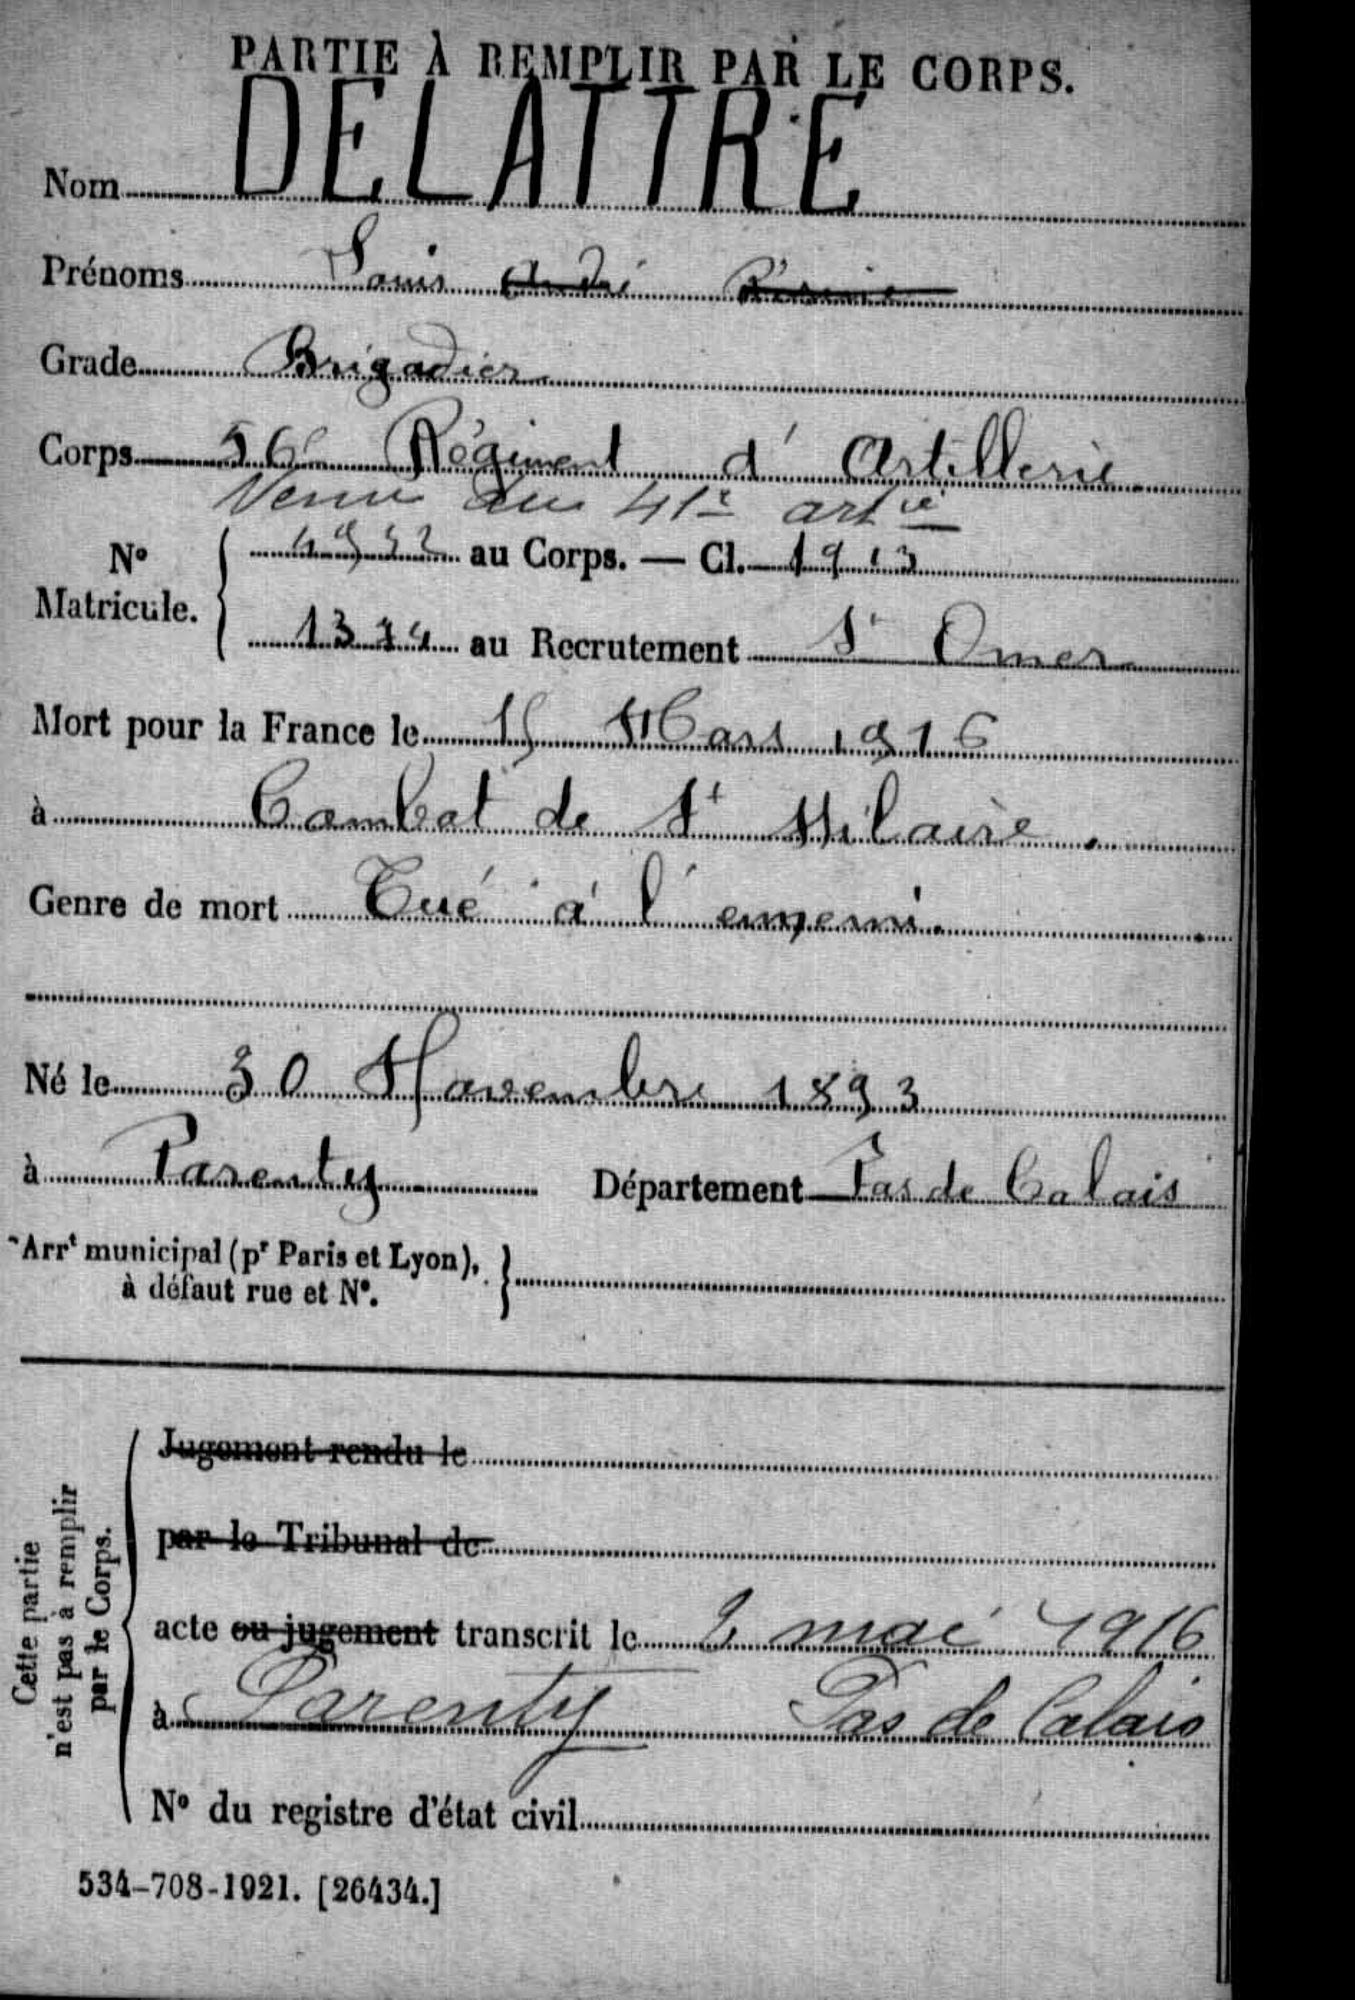 PARTIE À REMPLIR PAR LE CORPS.
Nom DELATTRE
Prénoms Louis André
Grade Brigadier
Corps 56e Régiment d'Artillerie
Venu du 41e artie
N° Matricule. au Corps. — Cl. 1913
1374 au Recrutement St Omer
Mort pour la France le 15 Mars 1916
à Combat de St Hilaire.
Genre de mort Tué à l'ennemi.
Né le 30 Novembre 1893
à Parenty Département Pas de Calais
Arrt municipal (pr Paris et Lyon),
à défaut rue et N°.
Cette partie
n'est pas à remplir
par le Corps.
Jugement rendu le
par le Tribunal de
acte ou jugement transcrit le 2 mai 1916
à Parenty Pas de Calais
N° du registre d'état civil
534-708-1921. [26434.]